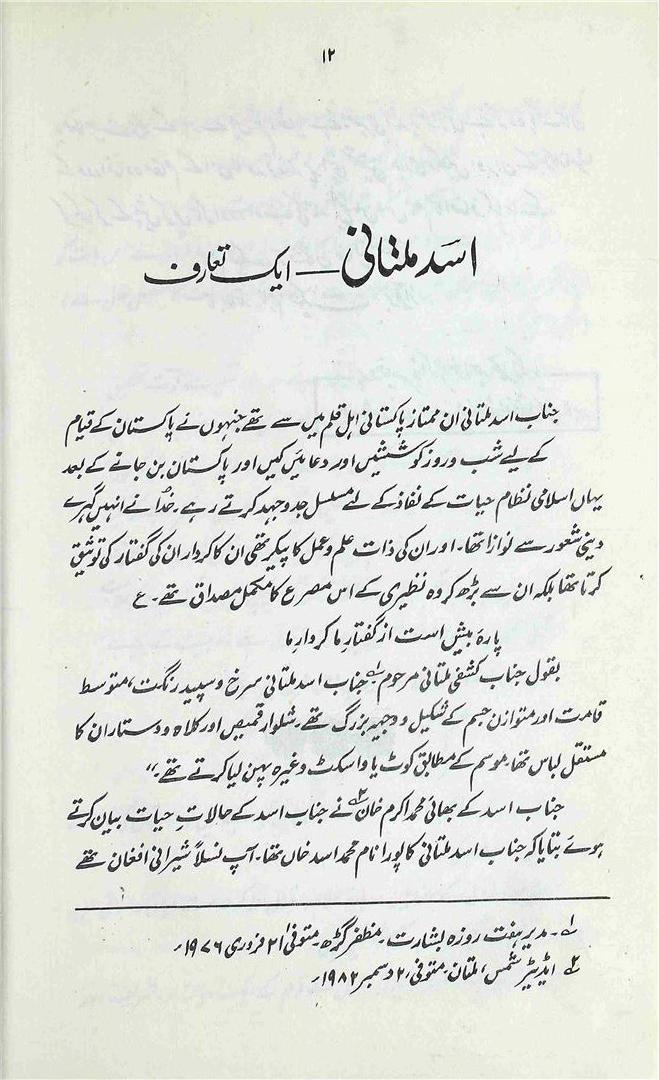 ۱۲
اسد ملتانی — ایک تعارف
جناب اسد ملتانی ان ممتاز پاکستانی اہل قلم میں سے تھے جنہوں نے پاکستان کے قیام
کے لیے شب و روز کوششیں اور دعائیں کیں اور پاکستان بن جانے کے بعد
یہاں اسلامی نظام حیات کے نفاذ کے لئے مسلسل جدوجہد کرتے رہے۔ خدا نے انہیں گہرے
دینی شعور سے نوازا تھا۔ اور ان کی ذات علم و عمل کا پیکر تھی ان کا کردار ان کی گفتار کی توثیق
کرتا تھا بلکہ ان سے بڑھ کر وہ نظیری کے اس مصرع کا مکمل مصداق تھے۔ ع
پارہ بیش است از گفتارِ ما کردارِ ما
بقول جناب کشفی ملتانی مرحوم؂۱ جناب اسد ملتانی سرخ و سپید رنگت، متوسط
قامت اور متوازن جسم کے شکیل و وجیہہ بزرگ تھے۔ شلوار قمیص اور کلاہ و دستار ان کا
مستقل لباس تھا۔ موسم کے مطابق کوٹ یا واسکٹ وغیرہ پہن لیا کرتے تھے۔"
جناب اسد کے بھائی محمد اکرم خان؂۲ نے جناب اسد کے حالاتِ حیات بیان کرتے
ہوئے بتایا کہ جناب اسد ملتانی کا پورا نام محمد اسد خاں تھا۔ آپ نسلاً شیرانی افغان تھے
؂۱۔ مدیر ہفت روزہ بشارت۔ مظفر گڑھ۔ متوفی ۲۱ فروری ۱۹۷۶ء
؂۲ ایڈیٹر شمس، ملتان۔ متوفی، ۲ دسمبر ۱۹۸۲ء